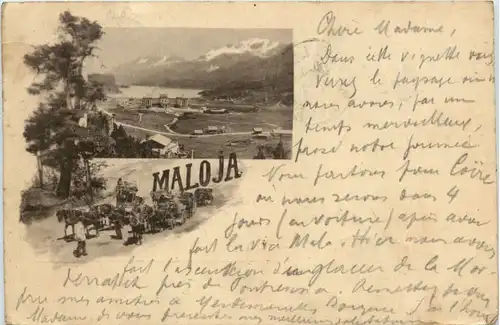 Chère Madame,
Dans cette vignette vous
verrez le paysage où
nous avons, par un
temps merveilleux,
passé notre journée
MALOJA
Nous partons pour Coire
où nous serons dans 4
jours (en voiture) après avoir
fait la via Mala. Hier nous avons
fait l'ascension d'un glacier de la Mor-
teratsch près de Pontresina.
mes amitiés à Mesdemoiselles
Madame, de vous présenter mes meilleures salutations